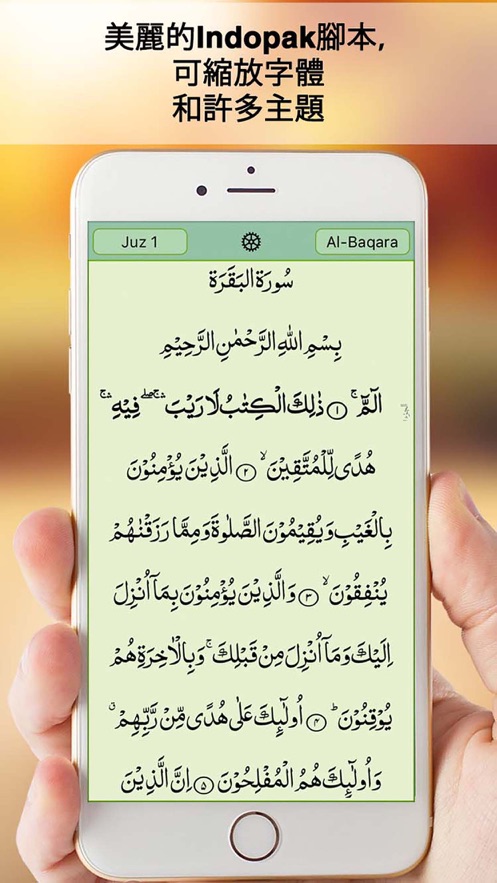 美麗的Indopak腳本,
可縮放字體
和許多主題
Juz 1
Al-Baqara
سُورَةُ الْبَقَرَة
بِسْمِ اللهِ الرَّحْمٰنِ الرَّحِيْمِ
الٓمّٓ ۚ ۝۱ ذٰلِكَ الْكِتٰبُ لَا رَيْبَ ۛۖۚ فِيْهِ ۛۚ
هُدًى لِّلْمُتَّقِيْنَ ۙ ۝۲ الَّذِيْنَ يُؤْمِنُوْنَ
بِالْغَيْبِ وَ يُقِيْمُوْنَ الصَّلٰوةَ وَ مِمَّا رَزَقْنٰهُمْ
يُنْفِقُوْنَ ۙ ۝۳ وَ الَّذِيْنَ يُؤْمِنُوْنَ بِمَاۤ اُنْزِلَ
اِلَيْكَ وَ مَاۤ اُنْزِلَ مِنْ قَبْلِكَ ۚ وَ بِالْاٰخِرَةِ هُمْ
يُوْقِنُوْنَ ؕ ۝۴ اُولٰٓئِكَ عَلٰى هُدًى مِّنْ رَّبِّهِمْ ۗ
وَ اُولٰٓئِكَ هُمُ الْمُفْلِحُوْنَ ۝۵ اِنَّ الَّذِيْنَ